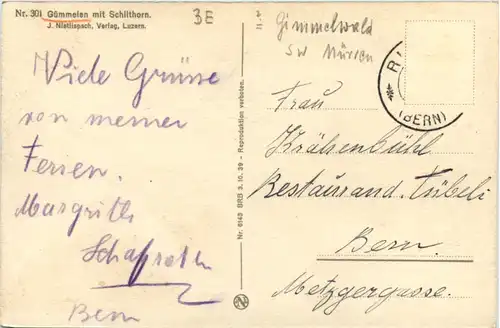 Nr. 301 Gümmelen mit Schilthorn.
J. Nietlispach, Verlag, Luzern.
3E
Gimmelwald
SW Mürren
(BERN)
Viele Grüsse
von meinen
Ferien.
Margritli
Bern
Nr. 6143 BRB 3. 10. 39 - Reproduktion verboten.
Frau
Krähenbühl
Restaurand. Tübeli
Bern.
Metzgergasse.